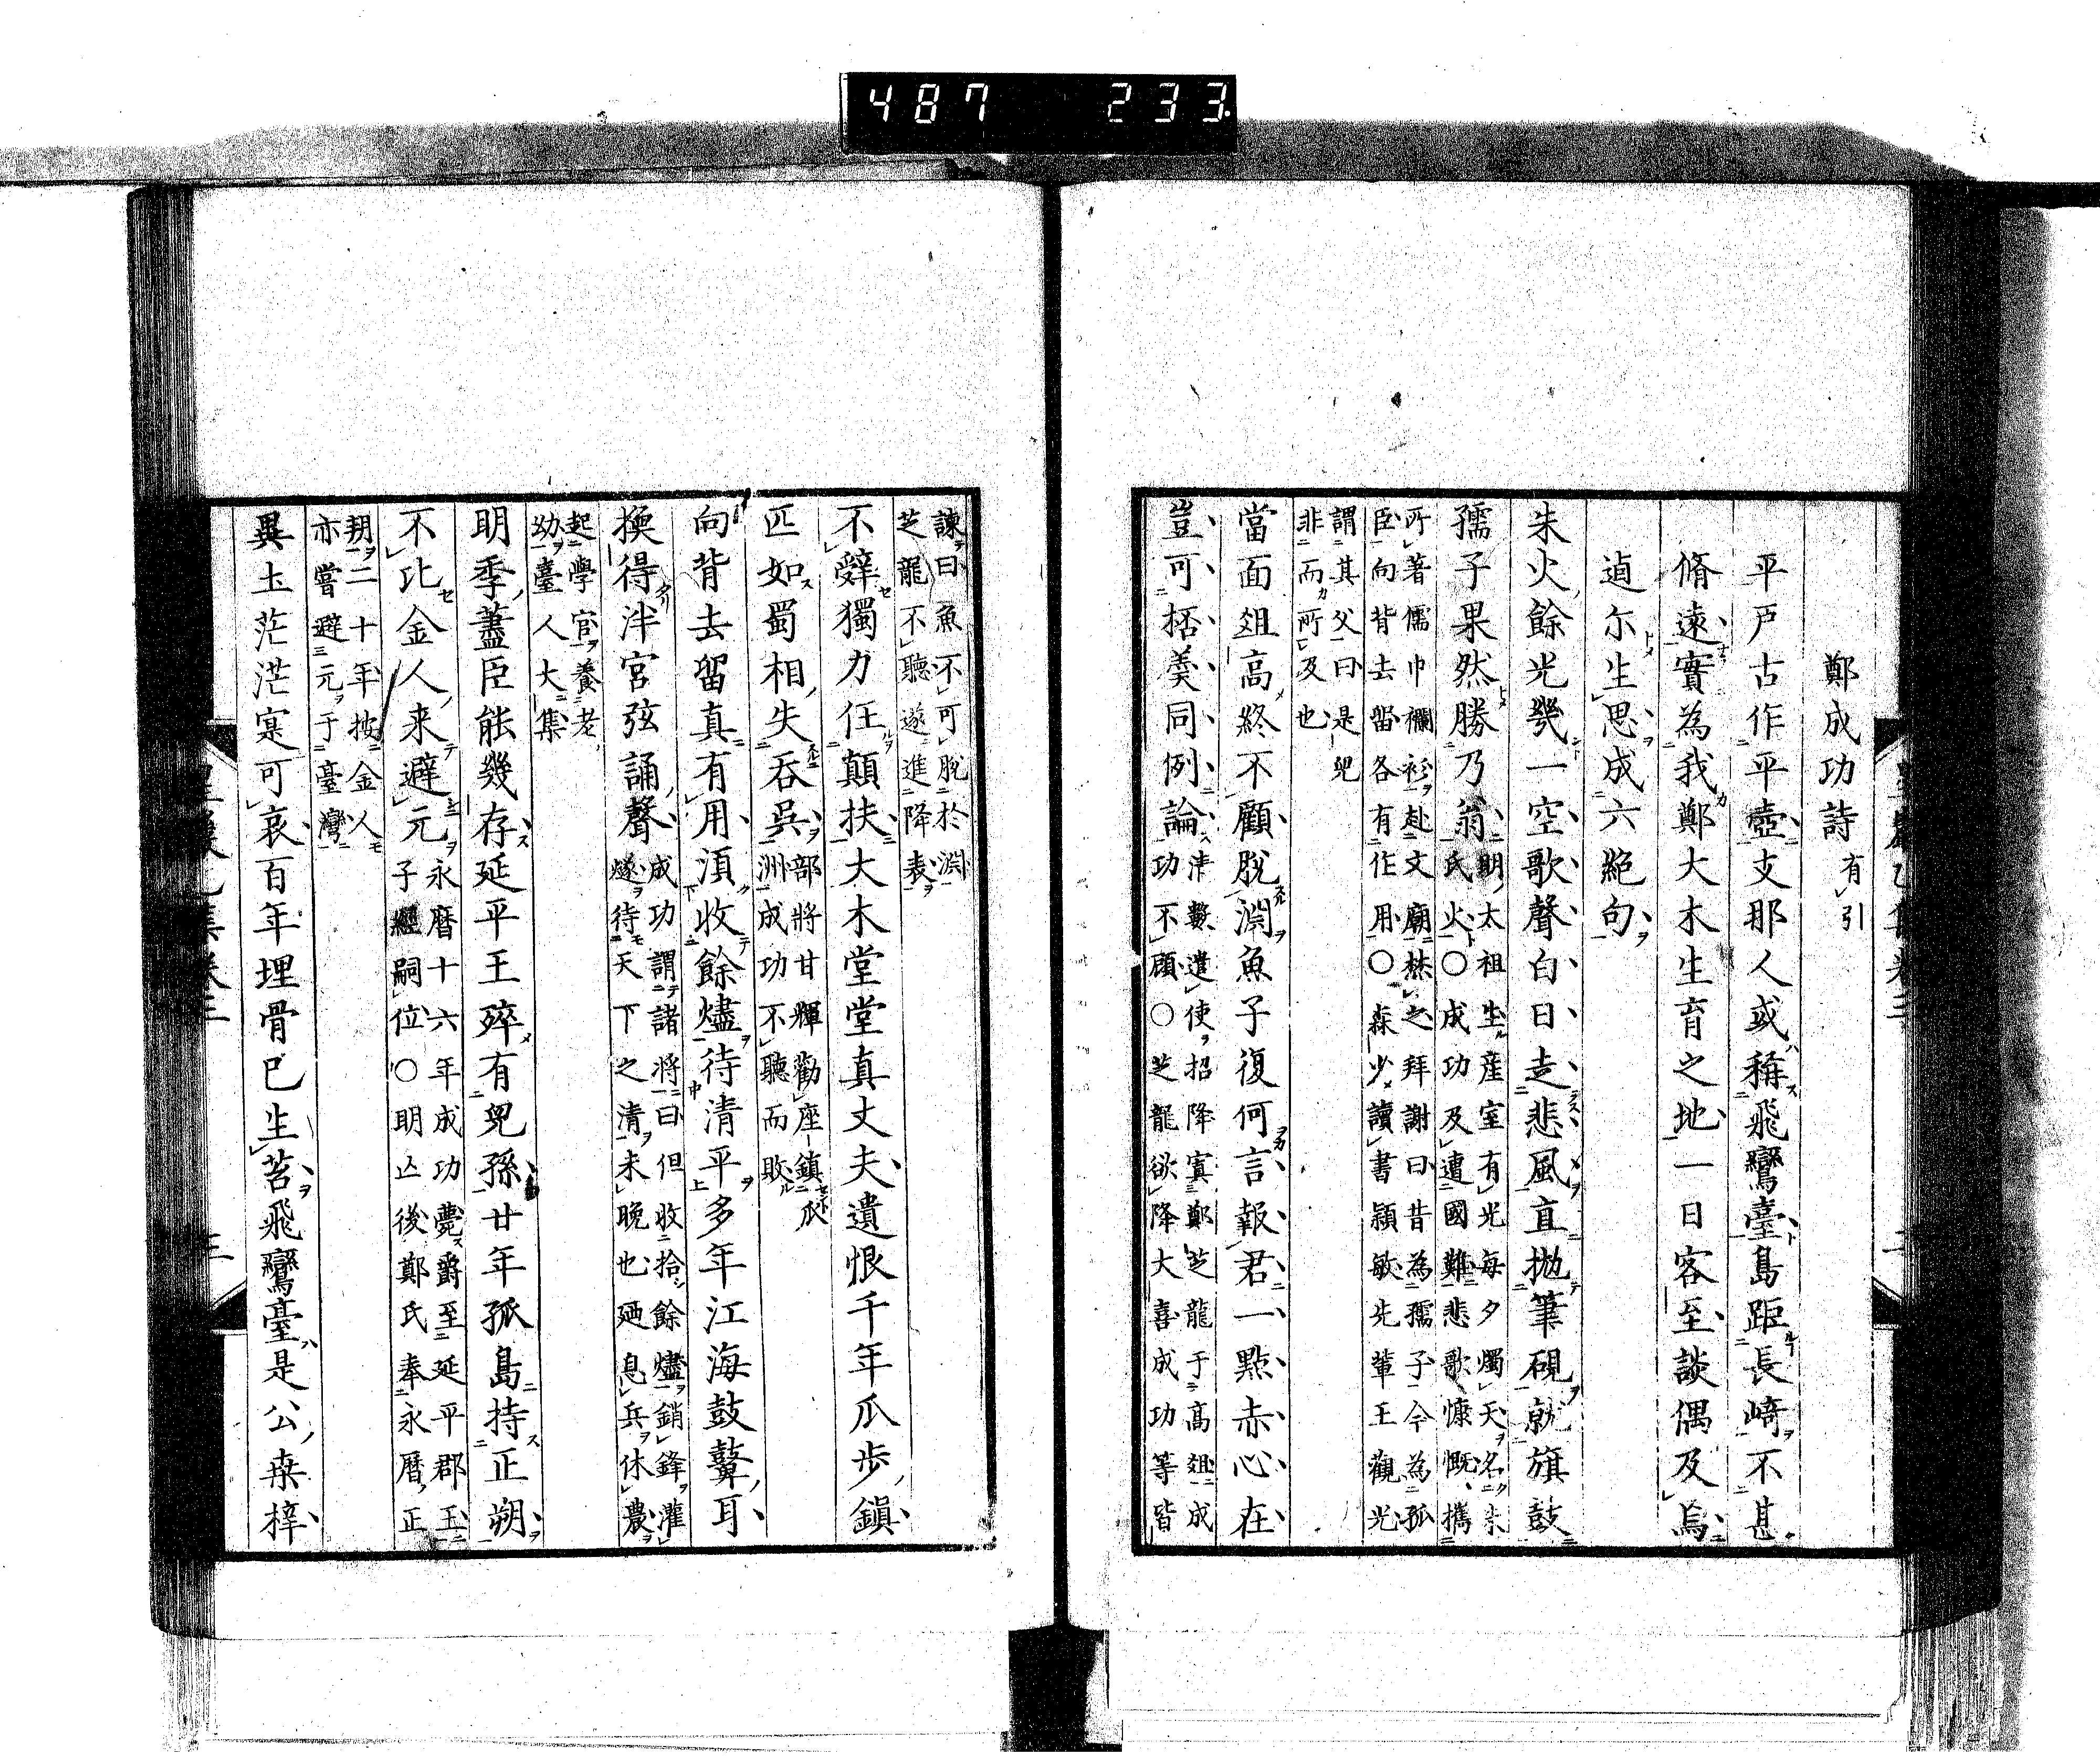 487 233
鄭成功詩有引
平戸古作平壺支那人或稱飛鸞臺島距長﨑不甚
脩遠實為我鄭大木生育之地一日客至談偶及焉
逌尓生思成六絶句
朱火餘光㡬一空歌聲白日走悲風直抛筆硯就旗鼓
孺子果然勝乃翁明太祖生産室有光每夕燭天名朱
氏火〇成功及遭國難悲歌慷慨攜
所著儒巾襴衫赴文廟焚之拜謝曰昔為孺子今為孤
臣向背去留各有作用〇森少讀書頴敏先輩王觀光
謂其父曰是兒
非而所及也
當面爼高終不顧脱淵魚子復何言報君一點赤心在
豈可栝羹同例論清數遣使招降寘鄭芝龍于高爼成
功不顧〇芝龍欲降大喜成功等皆
諫曰魚不可脱於淵
芝龍不聽遂進降表
不辭獨力任顛扶大木堂堂真丈夫遺恨千年瓜歩鎮
匹如蜀相失吞吳部將甘輝勸座鎮瓜
洲成功不聽而敗
向背去留真有用湏收餘燼待清平多年江海鼓鼙耳
換得泮宮弦誦聲成功謂諸將曰但收拾餘燼銷鋒灌
燧待天下之清未晚也廼息兵休農
起學官養老
幼臺人大集
明季藎臣能幾存延平王殍有兒孫廿年孤島持正朔
不比金人來避元永曆十六年成功薨爵至延平郡王
子經嗣位〇明亾後鄭氏奉永曆正
朔二十年按金人
亦嘗避元于臺灣
異土茫茫寔可哀百年埋骨已生苔飛鸞臺是公桒梓